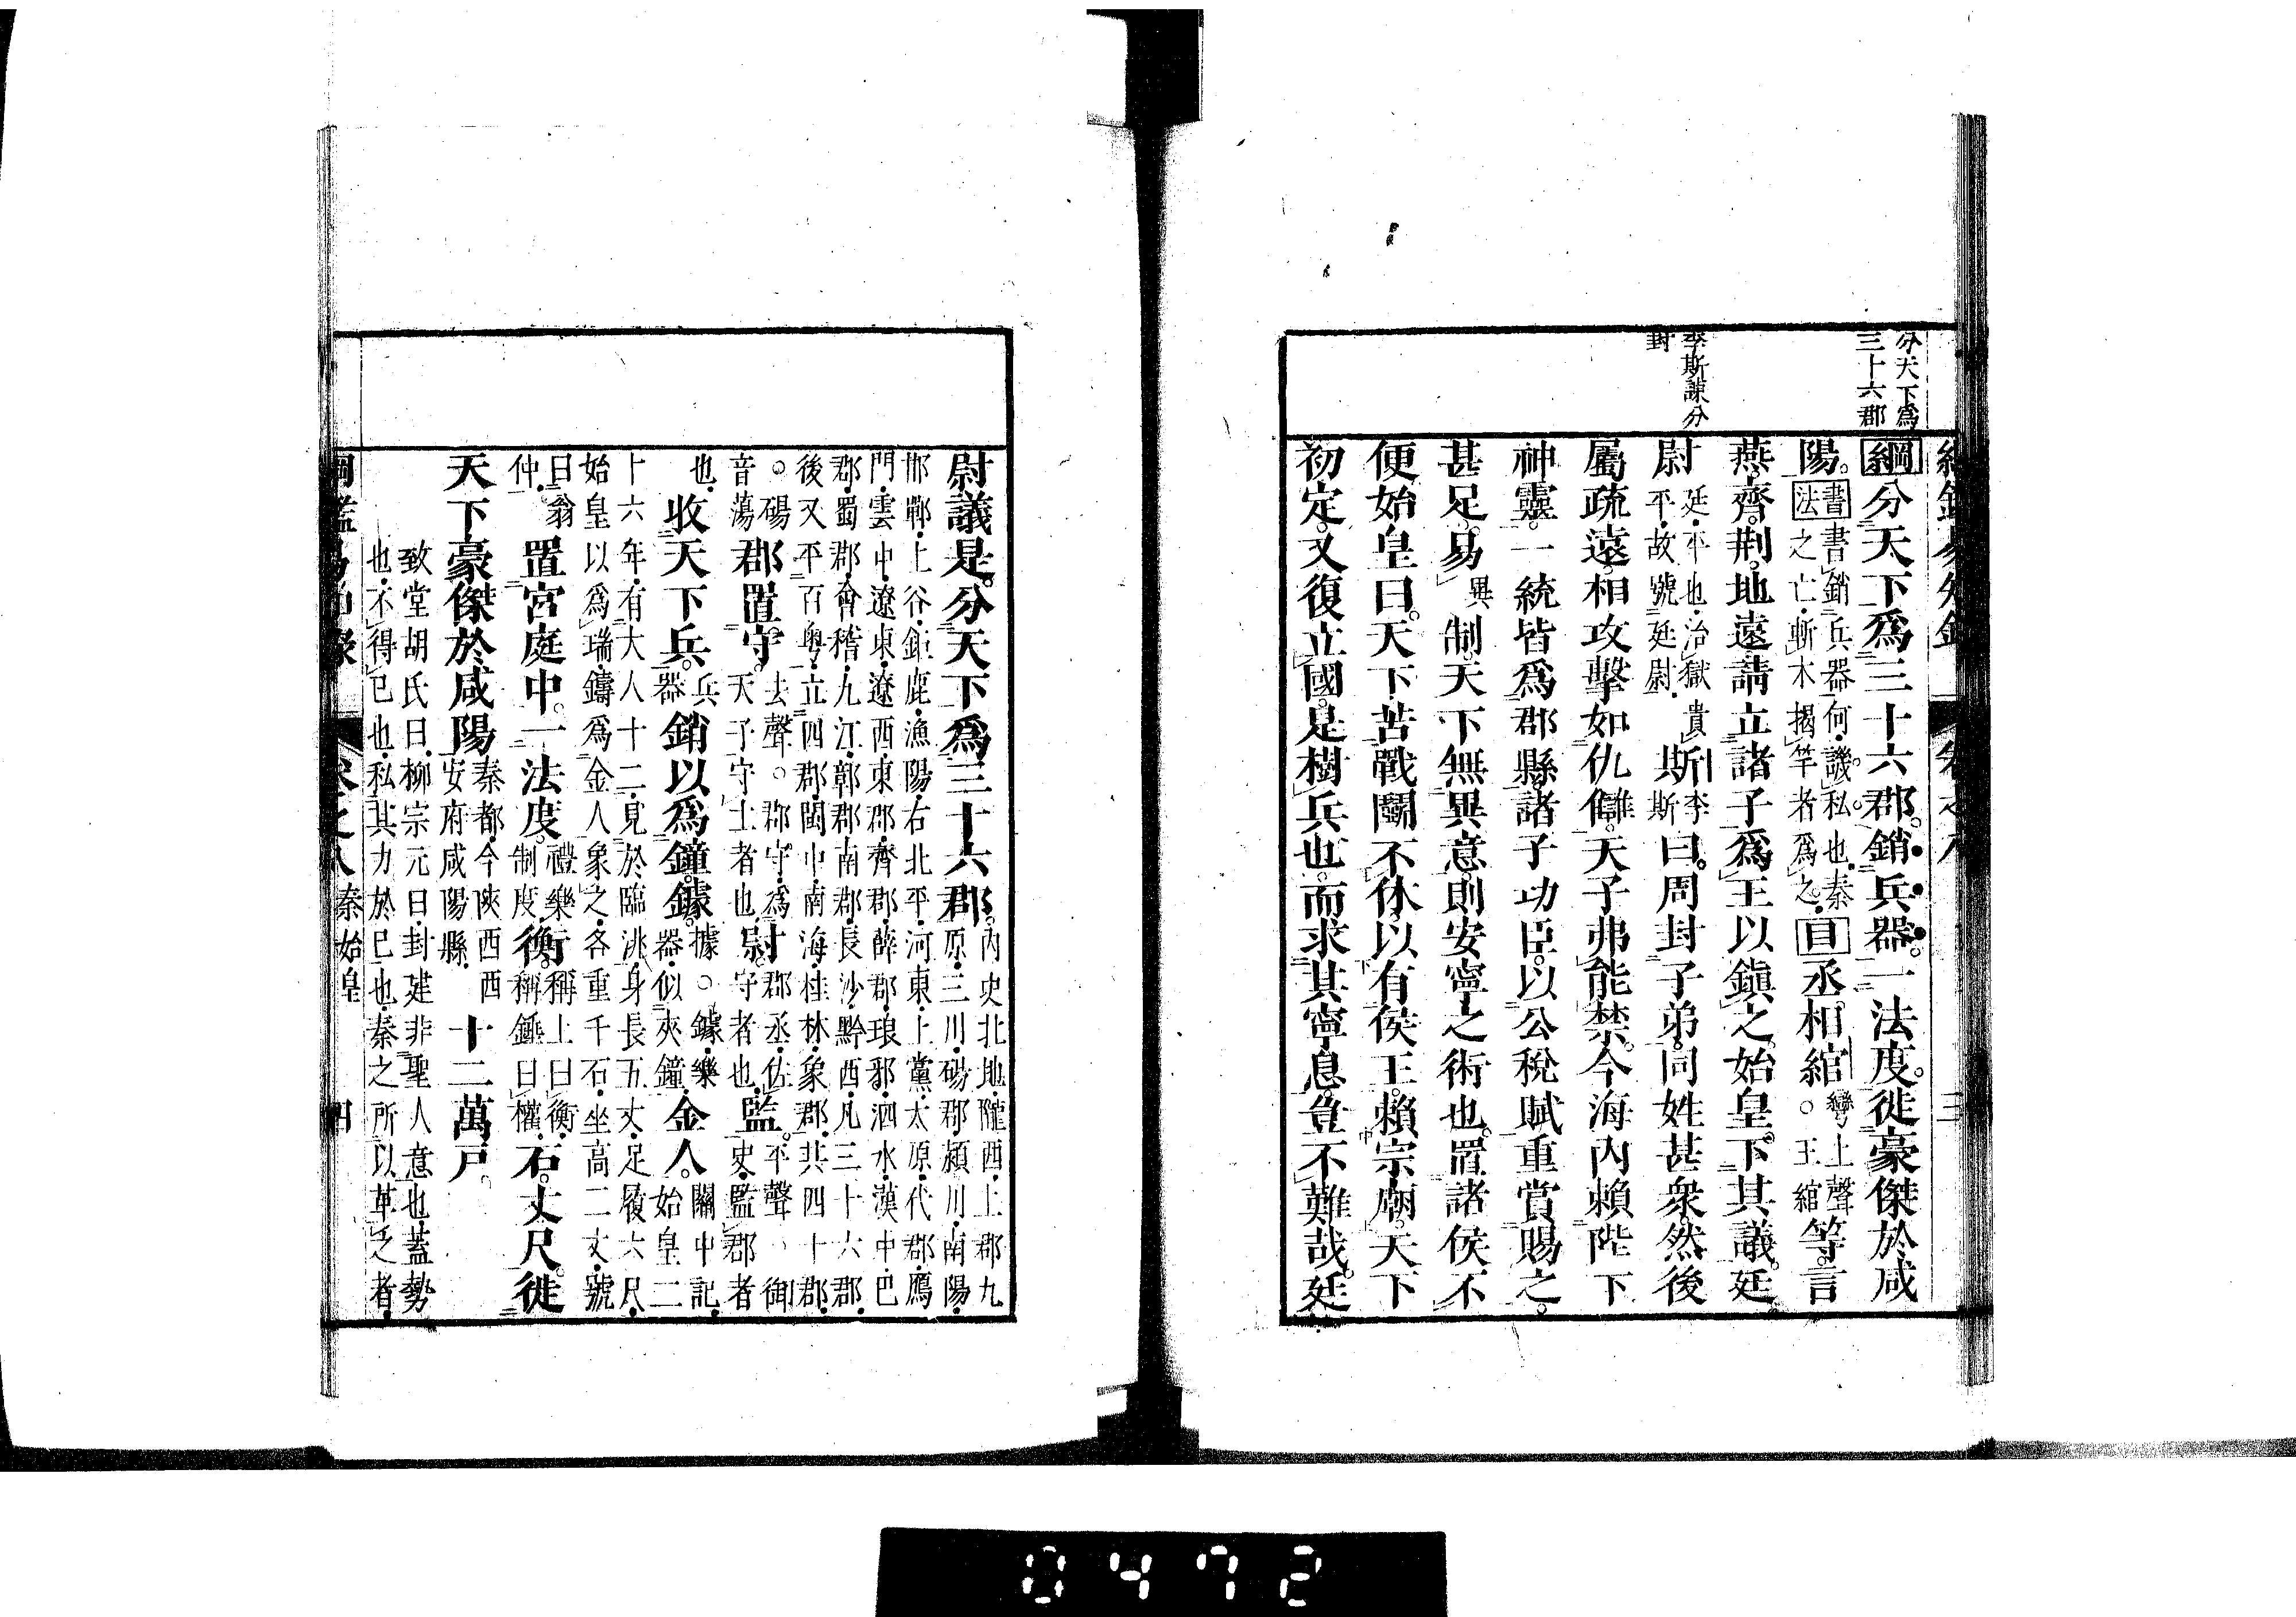 分天下爲
三十六郡
李斯諫分
封
綱分天下爲三十六郡。銷兵器。一法度。徙豪傑於咸
陽。書法書銷兵器何。譏私也。秦之亡。斬木揭竿者爲之。目丞相綰彎上聲。○王綰等。言
燕。齊。荆。地遠。請立諸子爲王以鎭之。始皇。下其議。廷
尉廷。平也。治獄貴平。故號廷尉。斯李斯曰。周封子弟。同姓甚衆。然後
屬疏遠。相攻擊如仇讎。天子弗能禁。今海內賴陛下
神靈。一統皆爲郡縣。諸子功臣。以公稅賦重賞賜之。
甚足。易異制。天下無異意。則安寧之術也。置諸侯不
便。始皇曰。天下苦戰鬭不休。以有侯王。賴宗廟。天下
初定。又復立國。是樹兵也。而求其寧息。豈不難哉。廷
尉議是。分天下爲三十六郡。內史北地。隴西。上郡九原。三川。碭郡。潁川。南陽。
邯鄲。上谷。鉅鹿。漁陽。右北平。河東。上黨。太原。代郡。鴈
門。雲中。遼東。遼西。東郡。齊郡。薛郡。琅邪。泗水。漢中。巴
郡。蜀郡。會稽。九江。鄣郡。南郡。長沙。黔西。凡三十六郡。
後又平百粤。立四郡。閩中。南海。桂林。象郡。共四十郡。
○碭音蕩郡置守。去聲。○郡守。爲天子守土者也。尉。郡丞。佐守者也。監。平聲。御史。監郡者
也。收天下兵。兵器銷以爲鐘。鐻。據。○鐻。樂器。似夾鐘金人。關中記。始皇二
十六年。有大人十二。見於臨洮。身長五丈。足履六尺。
始皇以爲瑞。鑄爲金人象之。各重千石。坐高二丈。號
曰翁仲。置宮庭中。一法度。禮樂制度衡。稱上曰衡。稱錘曰權。石。丈尺。徙
天下豪傑於咸陽秦都。今陝西西安府咸陽縣。十二萬戸。
致堂胡氏曰。柳宗元曰封建非聖人意也。蓋勢
也。不得已也。私其力於已也。秦之所以革之者。
秦始皇 四